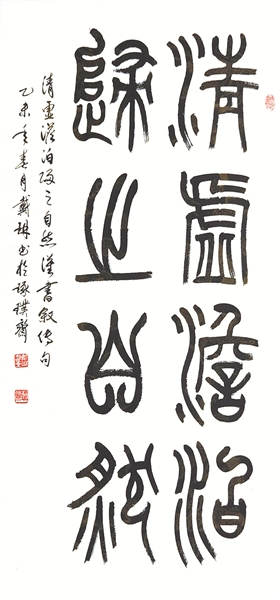 清虛澹泊
歸之自然
清虛澹泊歸之自然漢書敘傳句
乙未年春月戴琳書於琢璞齋